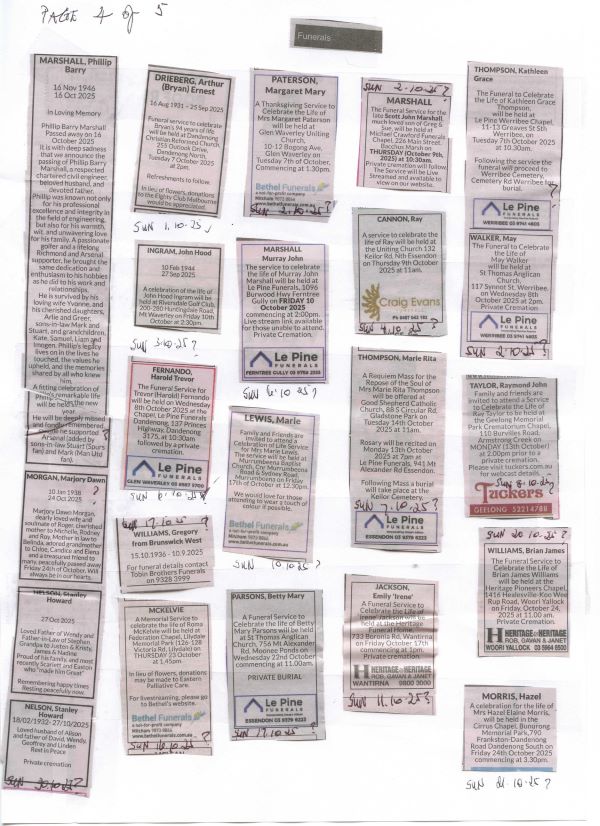 PAGE 4 of 5
Funerals
MARSHALL, Phillip
Barry
16 Nov 1946
16 Oct 2025
In Loving Memory
Phillip Barry Marshall
Passed away on 16
October 2025
It is with deep sadness
that we announce the
passing of Phillip Barry
Marshall, a respected
chartered civil engineer,
beloved husband, and
devoted father.
Phillip was known not only
for his professional
excellence and integrity in
the field of engineering,
but also for his warmth,
wit, and unwavering love
for his family. A passionate
golfer and a lifelong
Richmond and Arsenal
supporter, he brought the
same dedication and
enthusiasm to his hobbies
as he did to his work and
relationships.
He is survived by his
loving wife Yvonne, and
his cherished daughters,
Arlie and Greer,
sons-in-law Mark and
Stuart, and grandchildren,
Kate, Samuel, Liam and
Imogen. Phillip's legacy
lives on in the lives he
touched, the values he
upheld, and the memories
shared by all who knew
him.
A fitting celebration of
Phillip's remarkable life
will be held in the new
year.
He will be deeply missed
and fondly remembered
while he supported
Arsenal (added by
son-in-law Stuart (Spurs
fan) and Mark (Man Utd
fan).
MORGAN, Marjory Dawn
10 Jan 1938
24 Oct 2025
Marjory Dawn Morgan,
dearly loved wife and
soulmate of Roger, cherished
mother to Michelle, Rodney
and Roy. Mother in law to
Belinda, adored grandmother
to Chloe, Candice and Elena
and a treasured friend to
many, peacefully passed away
Friday 24th of October. Will
always be in our hearts.
NELSON, Stanley
Howard
27 Oct 2025
Loved Father of Wendy and
Father-in-Law of Stephen.
Grandpa to Justin & Kristy,
James & Nadine
Proud of his family, and most
recently Scarlett and Easton
who "made him Great"
Remembering happy times
Resting peacefully now.
NELSON, Stanley
Howard
18/02/1932- 27/10/2025
Loved husband of Alison
and father of David, Wendy,
Geoffrey and Linden
Rest in Peace
Private cremation
SUN 30.10.25?
DRIEBERG, Arthur
(Bryan) Ernest
16 Aug 1931 – 25 Sep 2025
Funeral service to celebrate
Bryan's 94 years of life
will be held at Dandenong
Christian Reformed Church,
255 Outlook Drive,
Dandenong North,
Tuesday 7 October 2025 at
2pm.
Refreshments to follow.
In lieu of flowers, donations
to the Eighty Club Melbourne
would be appreciated.
SUN 1.10.25
INGRAM, John Hood
10 Feb 1944
27 Sep 2025
A celebration of the life of
John Hood Ingram will be
held at Riversdale Golf Club,
200-280 Huntingdale Road,
Mt Waverley on Friday 10th
October at 2:30pm.
SUN 3.10.25 ?
FERNANDO,
Harold Trevor
The Funeral Service for
Trevor (Harold) Fernando
will be held on Wednesday
8th October 2025 at the
Chapel, Le Pine Funerals
Dandenong, 137 Princes
Highway, Dandenong
3175, at 10:30am
followed by cremation.
Le Pine
FUNERALS
SUN 6.10.25 ?
SUN 17.10.25 ?
WILLIAMS, Gregory
from Brunswick West
15.10.1936 - 10.9.2025
For funeral details contact
Tobin Brothers Funerals
on 9328 3999
MCKELVIE
A Memorial Service to
celebrate the life of Roma
McKelvie will be held at
Federation Chapel, Lilydale
Memorial Park (126-128
Victoria Rd, Lilydale) on
THURSDAY 23 October
at 1.45pm
In lieu of flowers, donations
may be made to Eastern
Palliative Care.
For livestreaming, please go
to Bethel's website.
Bethel Funerals
a not-for-profit company
Mitcham 9873 8866
www.bethelfunerals.com.au
PATERSON,
Margaret Mary
A Thanksgiving Service to
Celebrate the Life of Mrs
Margaret Paterson
will be held at
Glen Waverley Uniting
Church,
10-12 Bogong Ave,
Glen Waverley on
Tuesday 7th of October,
Commencing at 1.30pm.
Bethel Funerals
a not-for-profit company
Mitcham 9873 8866
www.bethelfunerals.com.au
SUN 2.10.25?
MARSHALL
Murray John
The service to celebrate
the life of Murray John
Marshall will be held at
Le Pine Funerals, 1096
Burwood Hwy Ferntree
Gully on FRIDAY 10
October 2025
commencing at 2:00pm.
Live stream link available
for those unable to attend.
Private Cremation.
Le Pine
FUNERALS
SUN 6.10.25 ?
LEWIS, Marie
Family and Friends are
invited to attend a
Celebration of Life Service
for Mrs Marie Lewis.
The service will be held at
Murrumbeena Baptist
Church, Cnr Murrumbeena
Road & Sydney Road,
Murrumbeena on Friday
17th of October at 12.30pm.
We would love for those
attending to wear a touch of
colour if possible.
Bethel Funerals
a not-for-profit company
Mitcham 9873 8866
www.bethelfunerals.com.au
SUN 10.10.25
PARSONS, Betty Mary
A Funeral Service to
Celebrate the Life of Betty
Mary Parsons will be held
at St Thomas Anglican
Church, 756 Mt Alexander
Rd, Moonee Ponds on
Wednesday 22nd October
commencing at 11.00am.
PRIVATE BURIAL
Le Pine
FUNERALS
ESSENDON 03 9379 6223
SUN 17.10.25 ?
SUN 2.10.25?
MARSHALL
The Funeral Service for the
late Scott John Marshall,
much loved son of Greg &
Sue, will be held at
Michael Crawford Funerals
Chapel, 226 Main Street,
Bacchus Marsh on
THURSDAY (October 9th,
2025) at 10.30am.
Private cremation will follow.
The Service will be Live
Streamed and available to
view on our website.
CANNON, Ray
A service to celebrate the
life of Ray will be held at
the Uniting Church 132
Keilor Rd, Nth Essendon
on Thursday 9th October
2025 at 11am.
Craig Evans
SUN 4.10.25 ?
THOMPSON, Marie Rita
A Requiem Mass for the
Repose of the Soul of
Mrs Marie Rita Thompson
will be offered at
Good Shepherd Catholic
Church, 88 S Circular Rd,
Gladstone Park on
Tuesday 14th October
2025 at 11am.
Rosary will be recited on
Monday 13th October
2025 at 7pm at
Le Pine Funerals, 941 Mt
Alexander Rd Essendon.
Following Mass a burial
will take place at the
Keilor Cemetery.
SUN 7.10.25 ?
Le Pine
FUNERALS
ESSENDON 03 9379 6223
JACKSON,
Emily 'Irene'
A Funeral Service to
Celebrate the Life of
Irene Jackson will be held
at the Heritage
Funerals
733 Boronia Rd, Wantirna
on Friday October 17th
commencing at 1pm.
Private cremation.
HERITAGE & HERITAGE
ROB, GAVAN & JANET
WANTIRNA 9800 3000
SUN 11.10.25?
THOMPSON, Kathleen
Grace
The Funeral to Celebrate
the Life of Kathleen Grace
Thompson,
will be held at
Le Pine Werribee Chapel,
11-13 Greaves St Sth
Werribee, on
Tuesday 7th October 2025
at 10.30am.
Following the service the
funeral will proceed to
Werribee Cemetery,
Cemetery Rd Werribee for
burial.
Le Pine
FUNERALS
WERRIBEE 03 9741 4603
WALKER, May
The Funeral to Celebrate
the Life of
May Walker
will be held at
St Thomas Anglican
Church,
117 Synnot St, Werribee,
on Wednesday 8th
October 2025 at 2pm.
Private Cremation.
Le Pine
FUNERALS
SUN 2.10.25 ?
TAYLOR, Raymond John
Family and friends are
invited to attend a Service
to Celebrate the Life of
Ray Taylor to be held at
the Geelong Memorial
Park Crematorium Chapel,
110 Burvilles Road,
Armstrong Creek on
MONDAY (13th October)
at 2.00pm prior to a
private cremation.
Please visit tuckers.com.au
for webcast details
SUN 8.10.25?
Tuckers
GEELONG 52214788
SUN 20.10.25 ?
WILLIAMS, Brian James
The Funeral Service to
Celebrate the Life of
Brian James Williams
will be held at the
Heritage Pioneers Chapel,
1416 Healesville-Koo Wee
Rup Road, Woori Yallock
on Friday, October 24,
2025 at 11.00 am.
Private cremation.
HERITAGE & HERITAGE
ROB, GAVAN & JANET
WOORI YALLOCK 03 5964 6500
MORRIS, Hazel
A celebration for the life of
Mrs Hazel Elaine Morris,
will be held in the
Cirrus Chapel, Bunurong
Memorial Park,790
Frankston-Dandenong
Road Dandenong South on
Friday 24th October 2025
commencing at 3.30pm.
SUN 21.10.25 ?